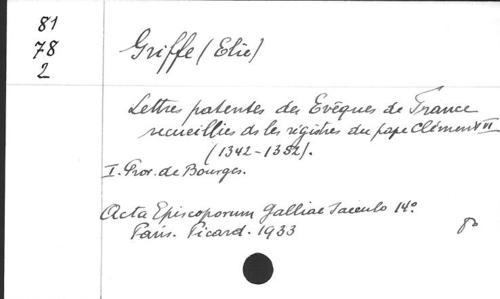 81
78
2
Griffe (Elie)
Lettres patentes des Evêques de France
recueillies ds les régistres du pape Clément VI
(1342-1352).
I. Prov. de Bourges.
Acta Episcoporum Galliae Saeculo 14º
Paris. Picard. 1933
8º